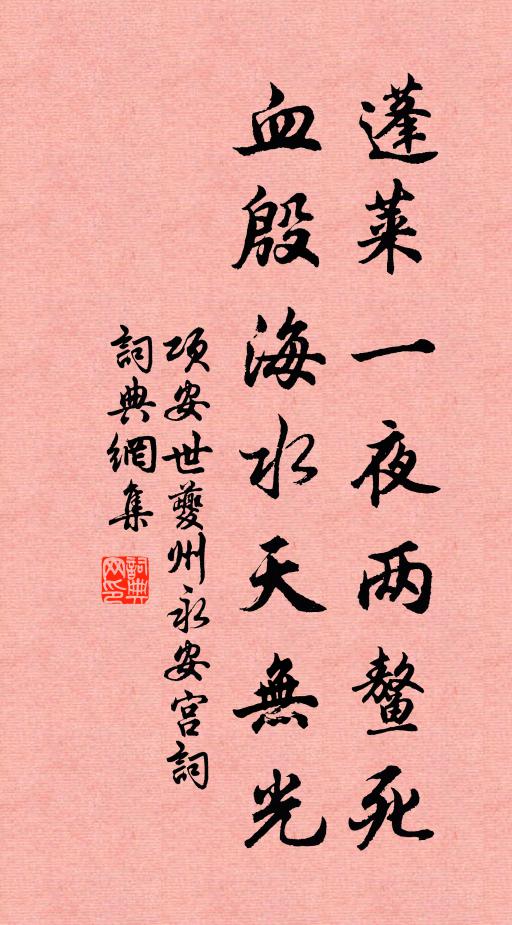 蓬莱一夜两鳌死
血殷海水天無光
项安世夔州永安宫詞
詞典網集
詞典网印